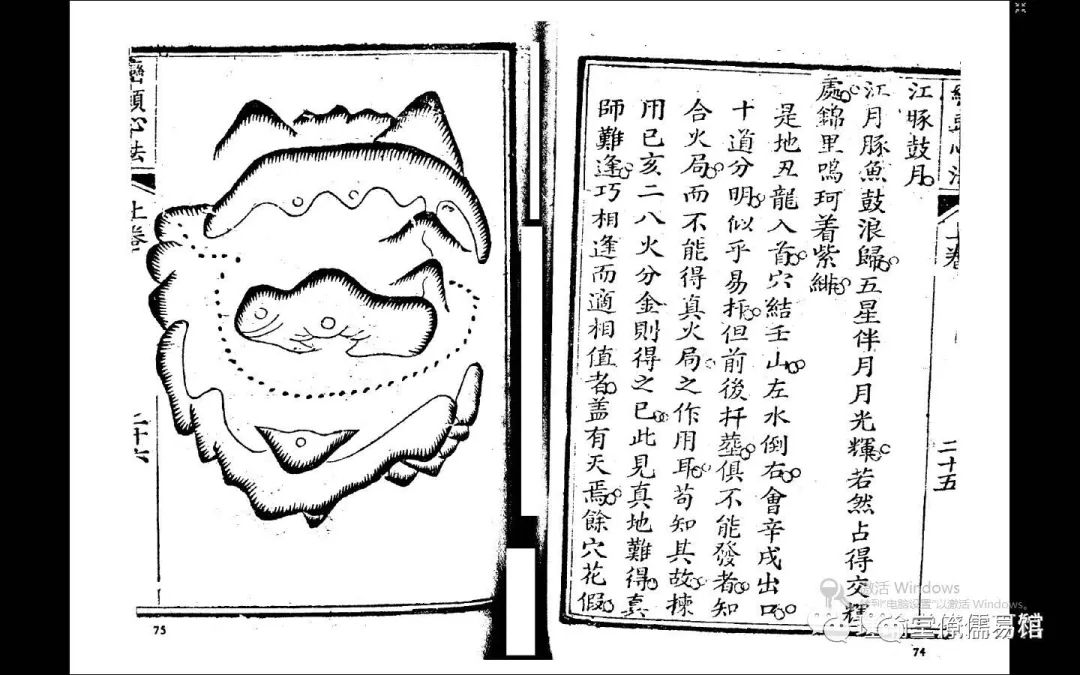 上卷
二十五
江豚鼓月
江月豚魚鼓浪歸五星伴月月光輝若然占得交輝
處錦里鳴珂着紫緋
是地丑龍入首穴結壬山左水倒右會辛戌出口
十道分明似乎易扦但前後扦塟俱不能發者知
合火局而不能得真火局之作用耳苟知其故揀
用巳亥二八火分金則得之已此見真地難得真
師難逢巧相逢而適相值者盖有天焉餘穴花假
74
巒頭心法
上卷
二十六
75
激活 Windows
到"电脑设置"以激活 Windows。
儒易馆